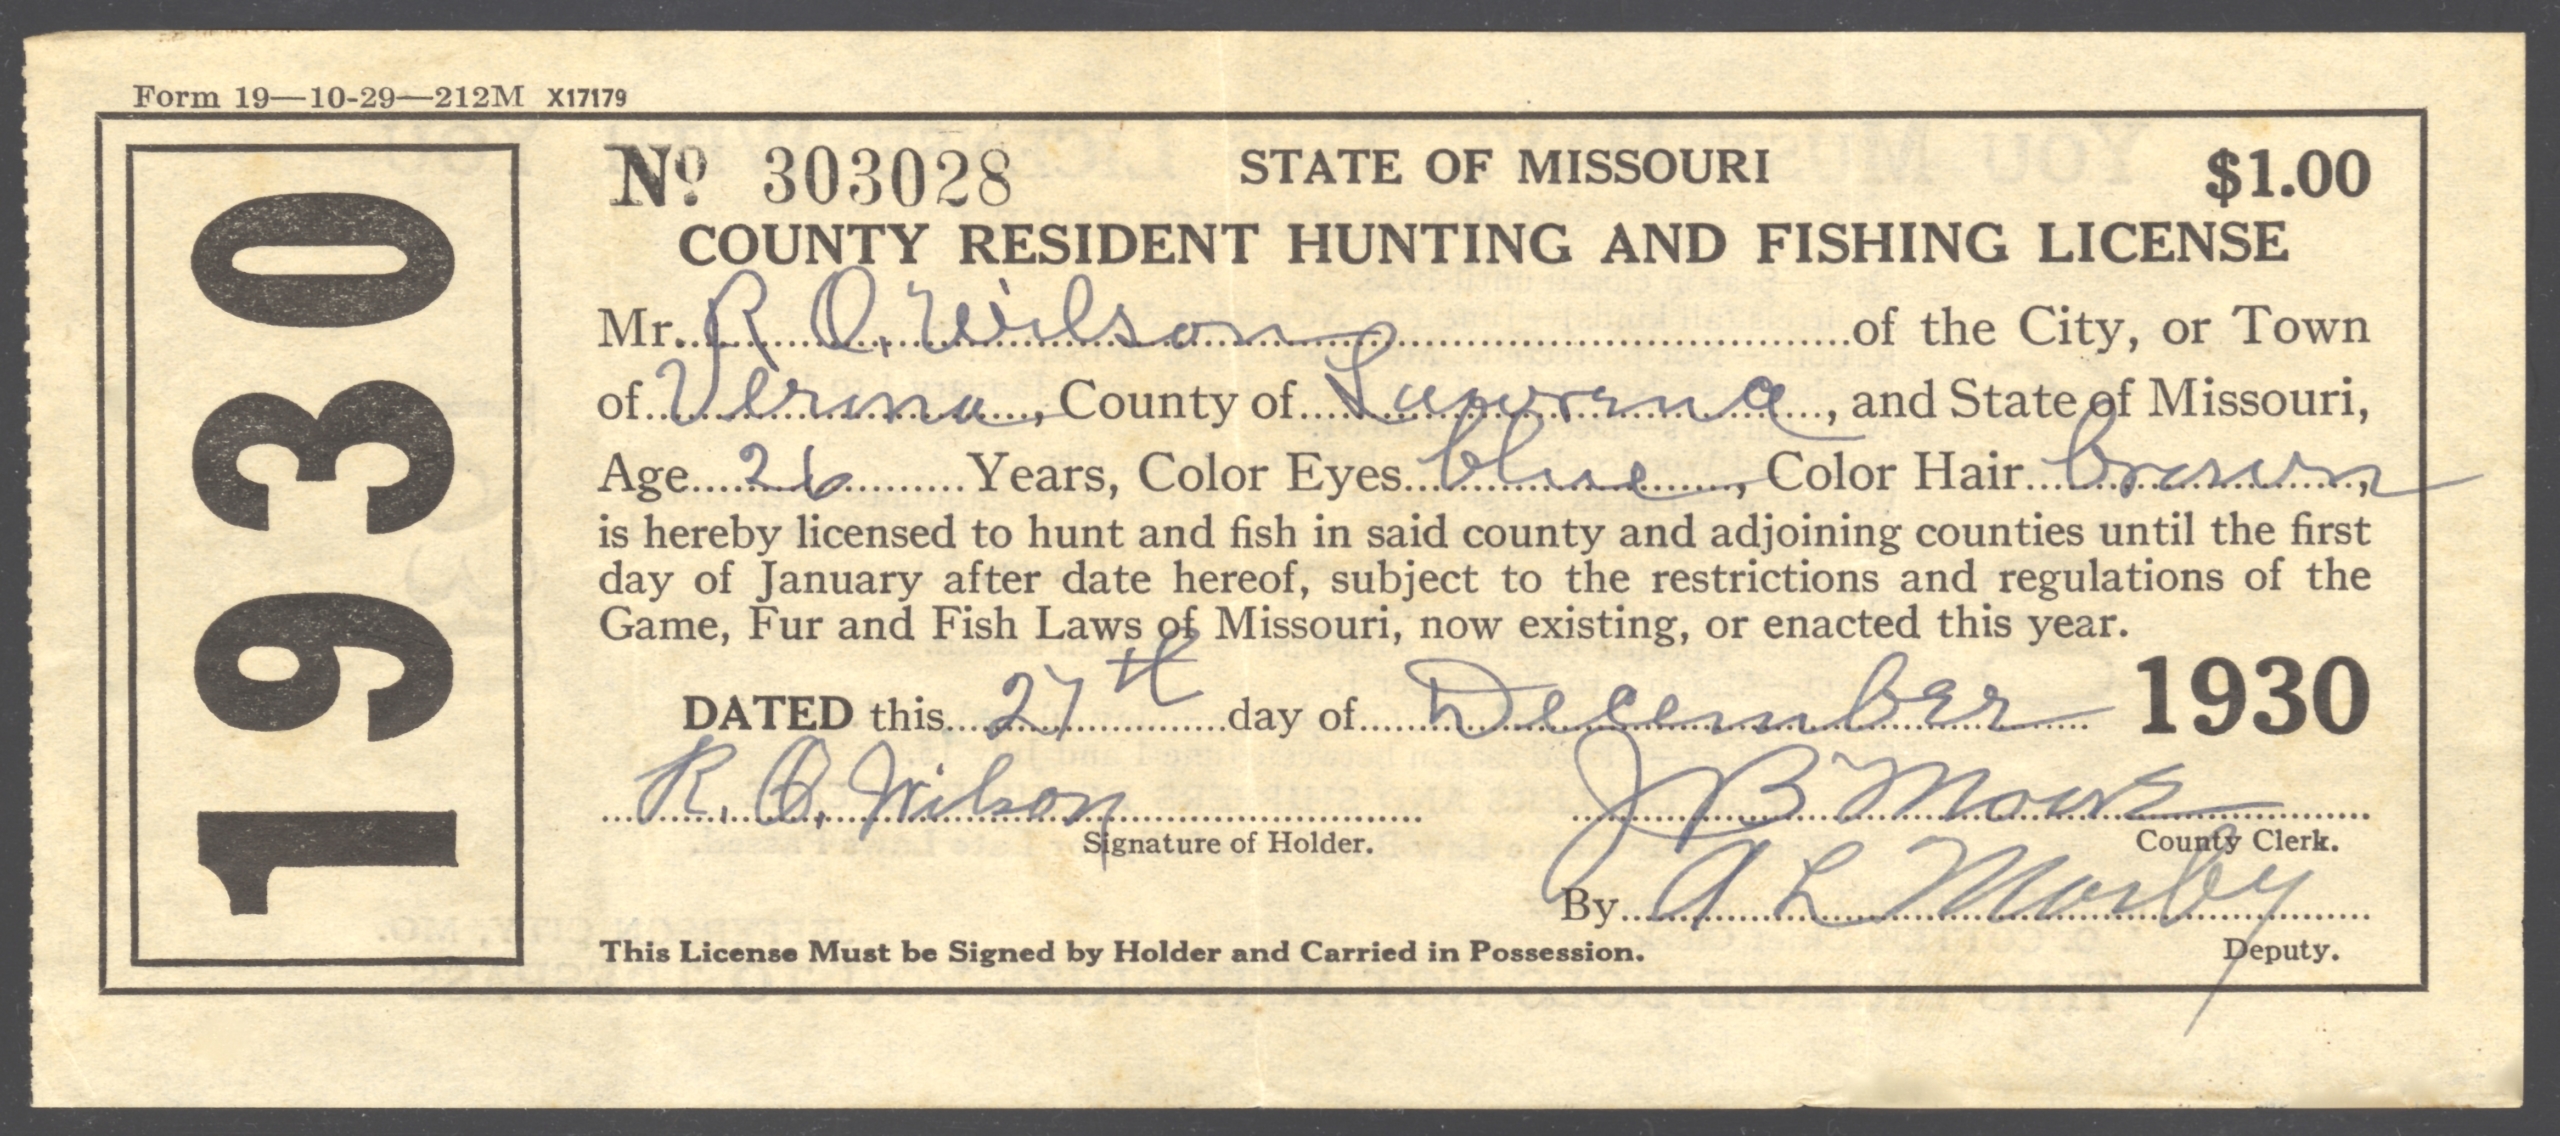 Form 19—10-29—212M X17179
1930
No. 303028 STATE OF MISSOURI $1.00
COUNTY RESIDENT HUNTING AND FISHING LICENSE
Mr. R. O. Wilson of the City, or Town
of Verona, County of Lawrence, and State of Missouri,
Age 26 Years, Color Eyes blue, Color Hair brown,
is hereby licensed to hunt and fish in said county and adjoining counties until the first
day of January after date hereof, subject to the restrictions and regulations of the
Game, Fur and Fish Laws of Missouri, now existing, or enacted this year.
DATED this 27th day of December 1930
R. O. Wilson J B
Signature of Holder. County Clerk.
By A L Mosby
This License Must be Signed by Holder and Carried in Possession. Deputy.